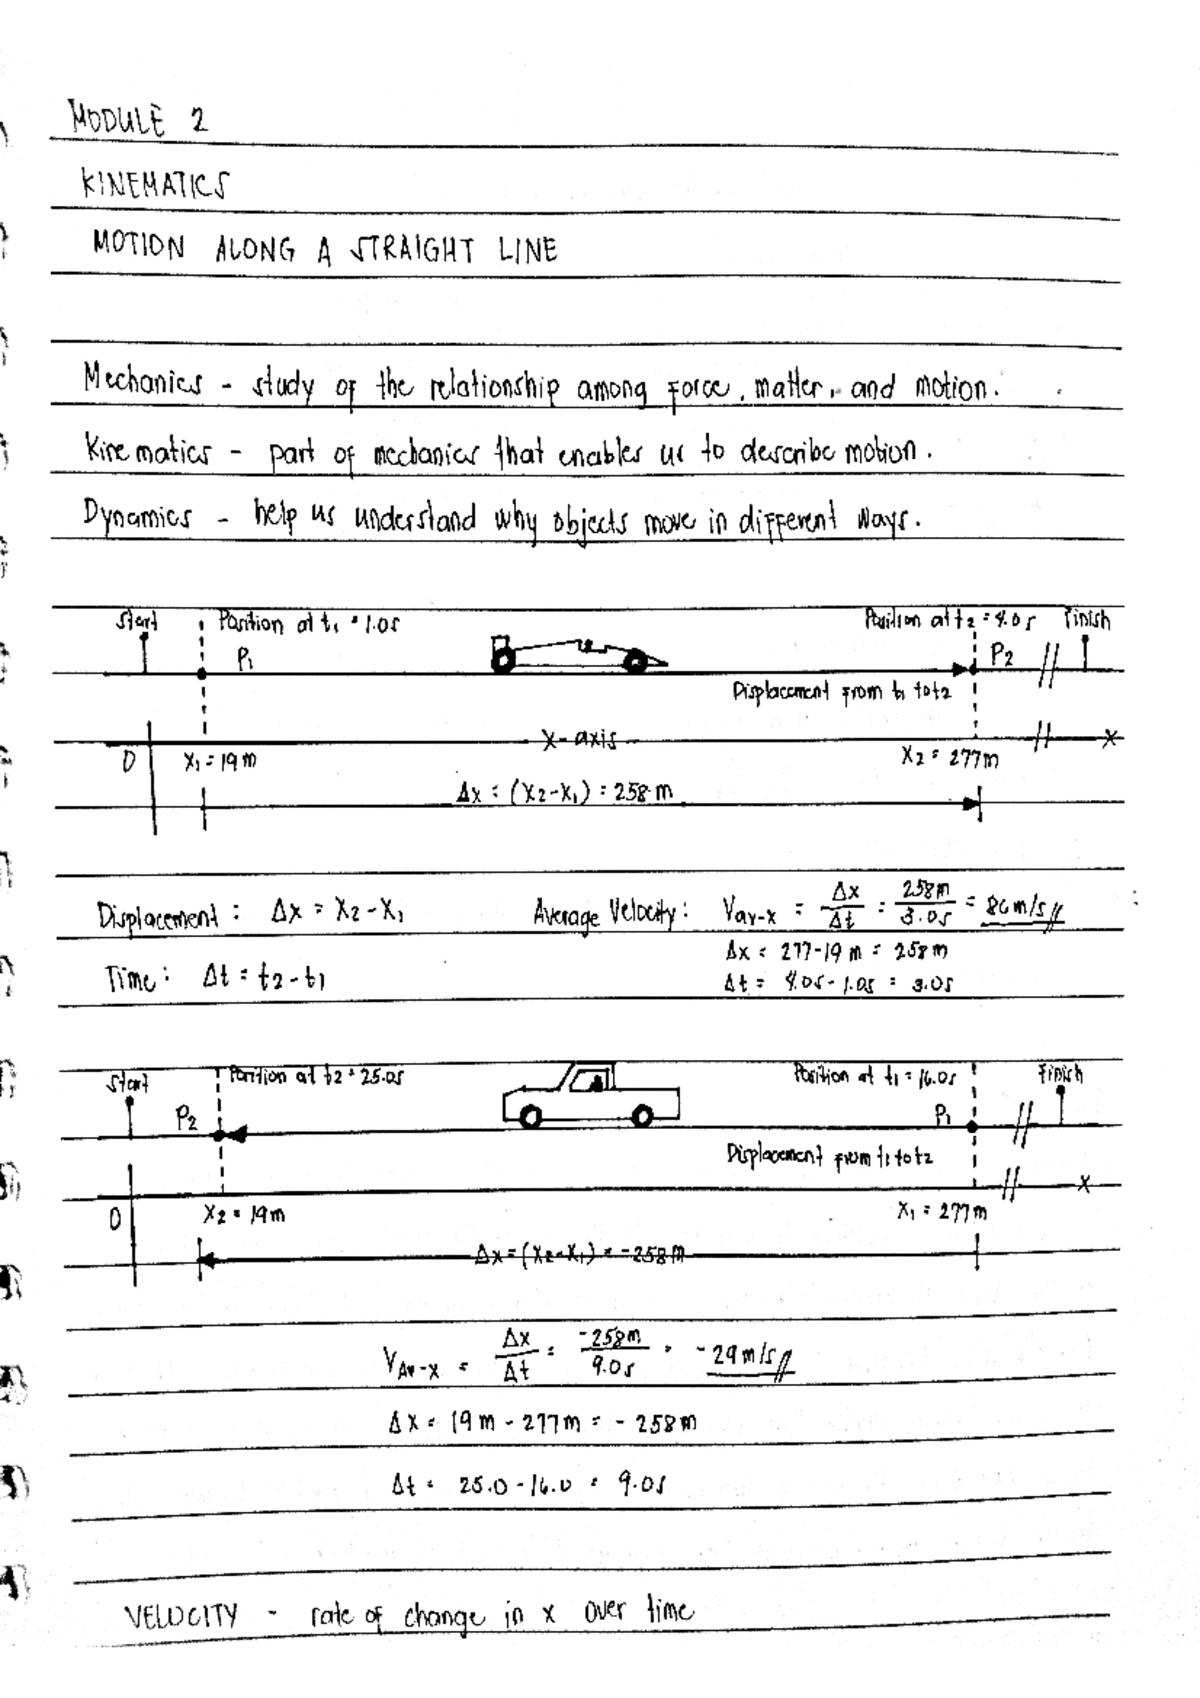 MODULE 2
KINEMATICS
MOTION ALONG A STRAIGHT LINE
Mechanics - study of the relationship among force, matter, and motion.
Kinematics - part of mechanics that enables us to describe motion.
Dynamics - help us understand why objects move in different ways.
Start Position at t₁ = 1.0s Position at t₂ = 4.0s Finish
P₁ P₂
Displacement from t₁ to t₂
X-axis X
0 X₁ = 19m X₂ = 277m
Δx = (X₂-X₁) = 258 m
Displacement: Δx = X₂-X₁ Average Velocity: Vav-x = Δx/Δt = 258m/3.0s = 86m/s
Δx = 277-19m = 258m
Time: Δt = t₂-t₁ Δt = 4.0s-1.0s = 3.0s
Start Position at t₂ = 25.0s Position at t₁ = 16.0s Finish
P₂ P₁
Displacement from t₁ to t₂
X
0 X₂ = 19m X₁ = 277m
Δx = (X₂-X₁) = -258m
VAv-x = Δx/Δt = -258m/9.0s = -29m/s
Δx = 19m - 277m = -258m
Δt = 25.0-16.0 = 9.0s
VELOCITY - rate of change in x over time